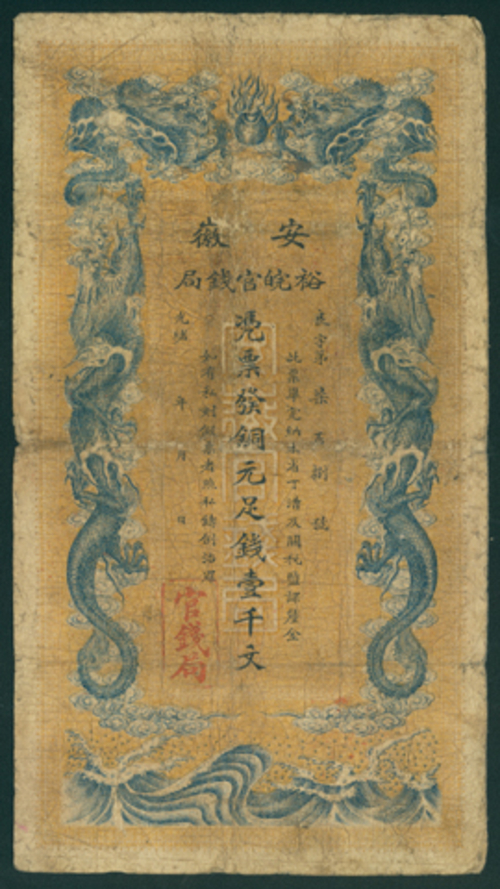 安徽
裕皖官錢局
字第柒百捌號
此票準完納本省丁漕及關稅鹽課釐金
憑票發銅元足錢壹千文
如有私刻假票者照私鑄例治罪
光緒年月日
官錢局